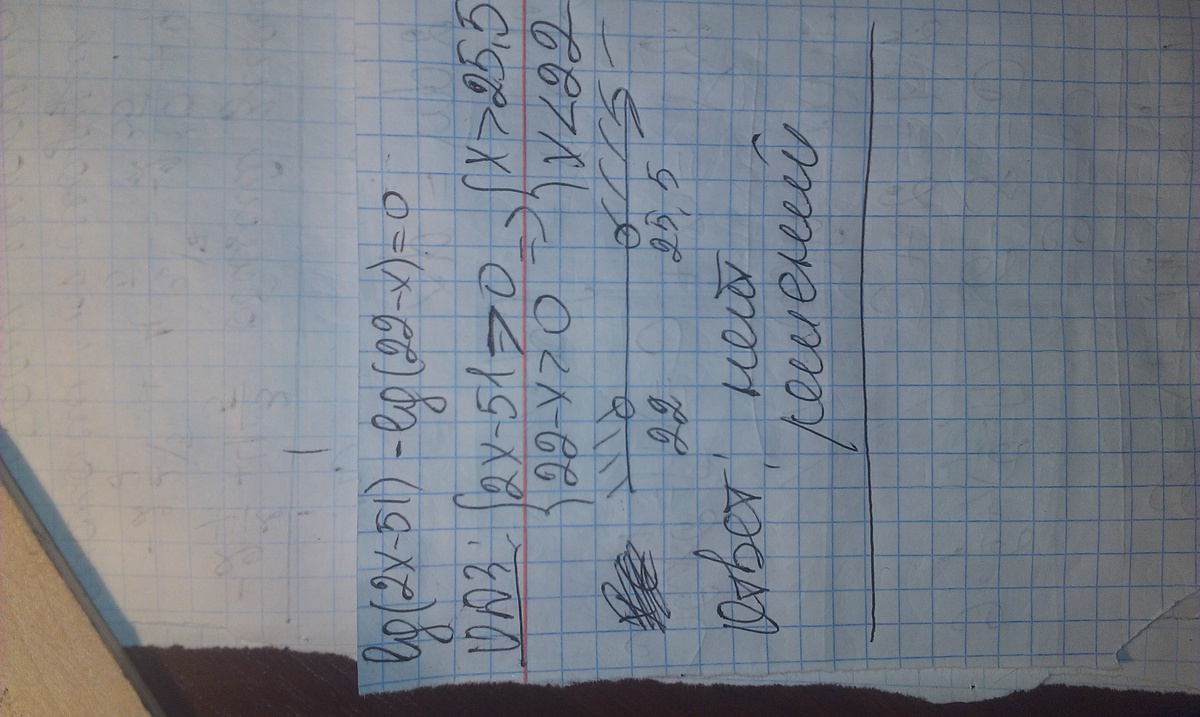 lg(2x-51)-lg(22-x)=0
ОДЗ: {2x-51>0 => {x>25,5
{22-x>0 {x<22
22 25,5
Ответ: нет
решений